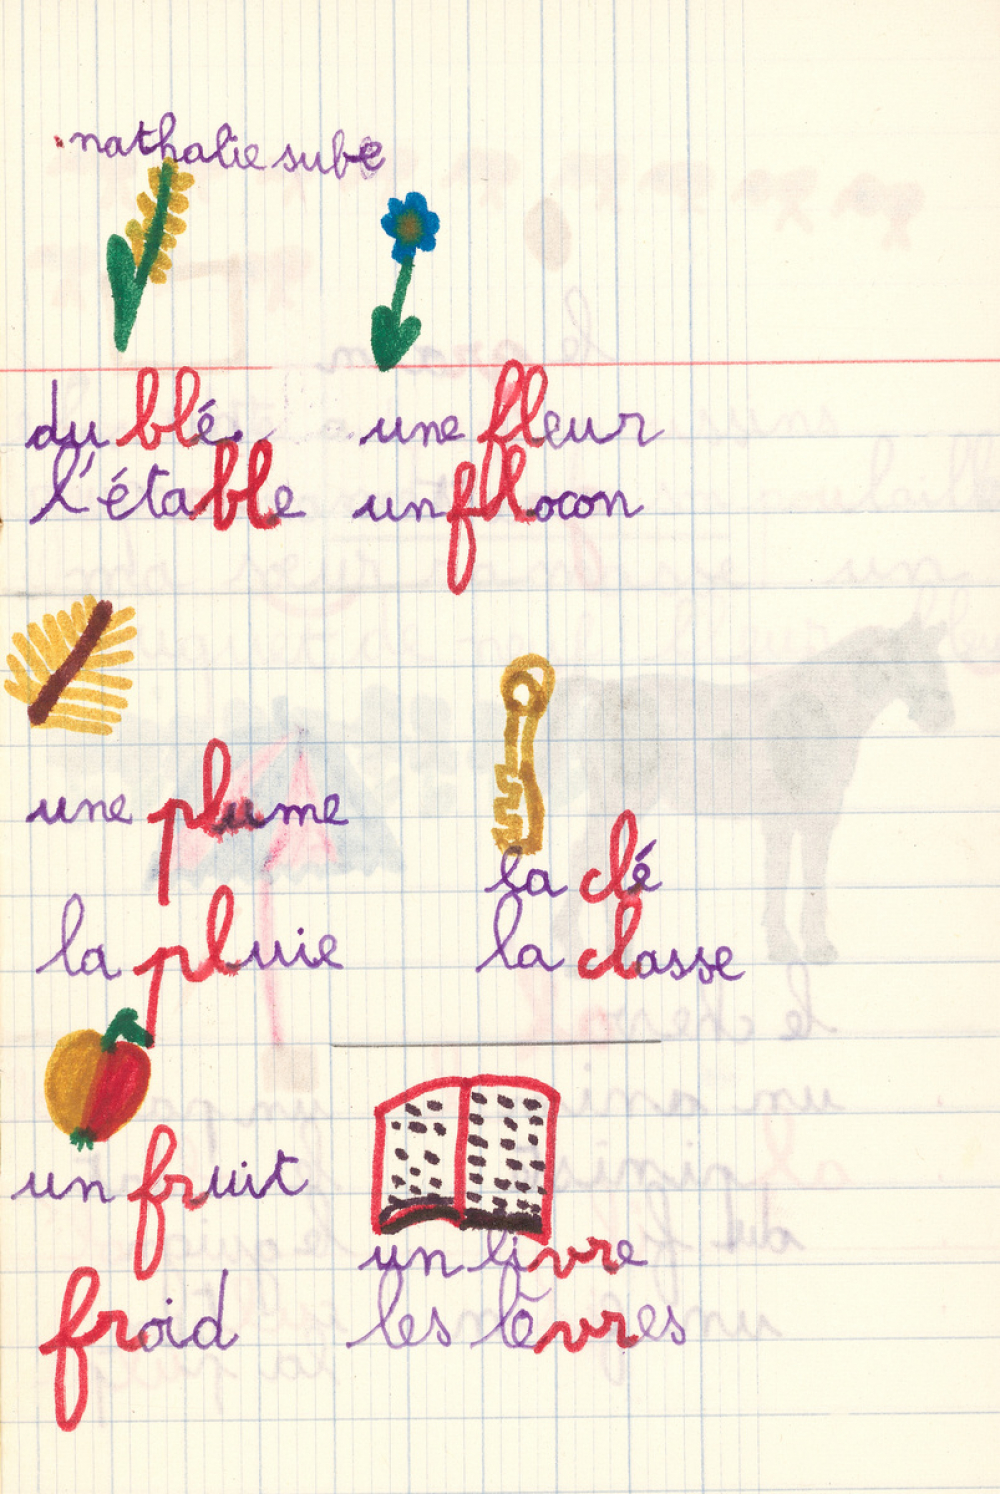 nathalie sube
du blé.
l'étable
une fleur
un flocon
une plume
la pluie
la clé
la classe
un fruit
froid
un livre
les lèvres